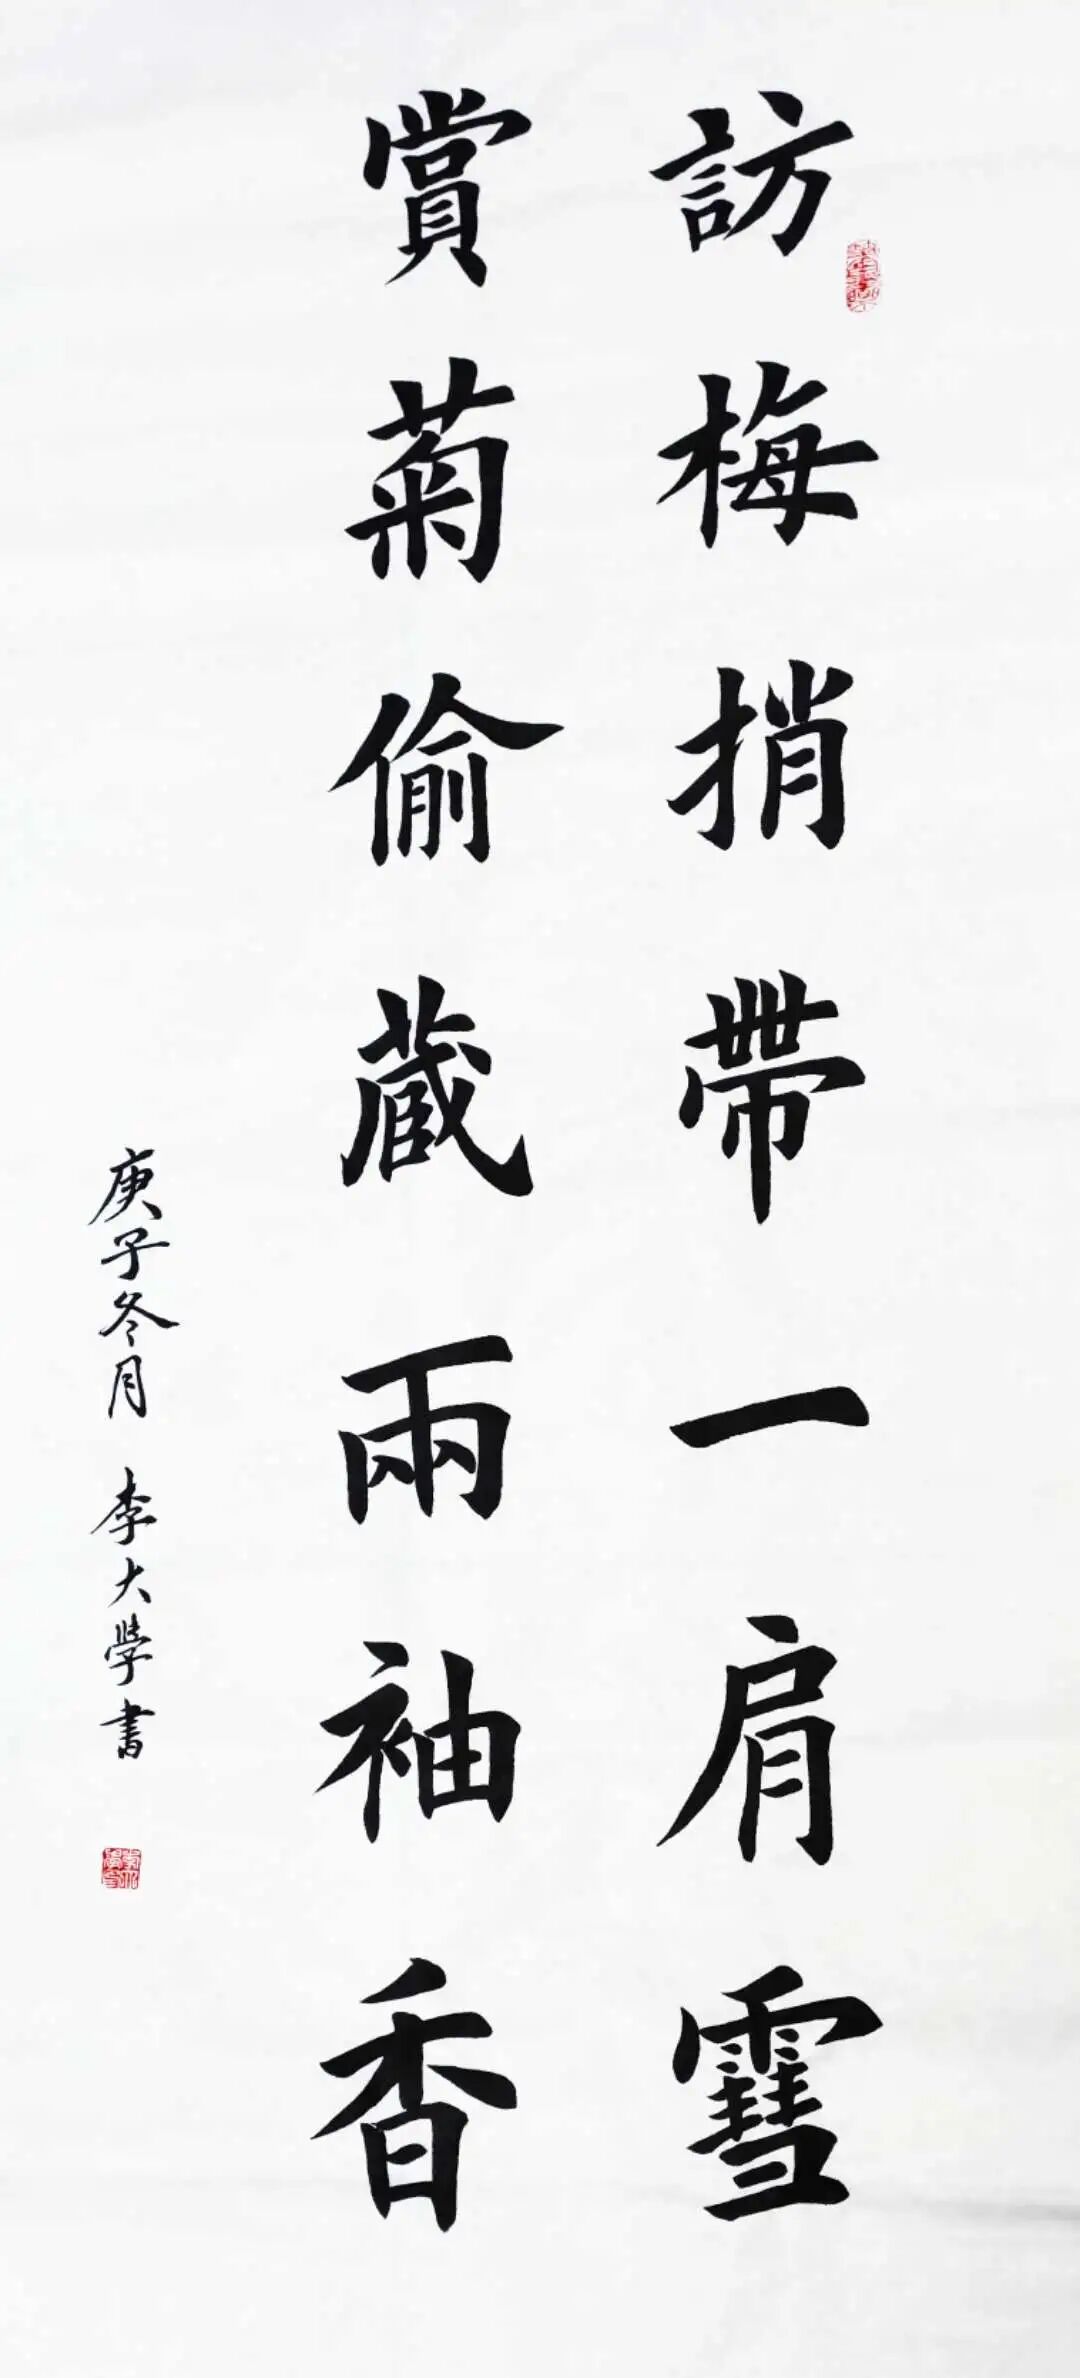 訪梅捎帶一肩雪
賞菊偷藏兩袖香
庚子冬月 李大學書